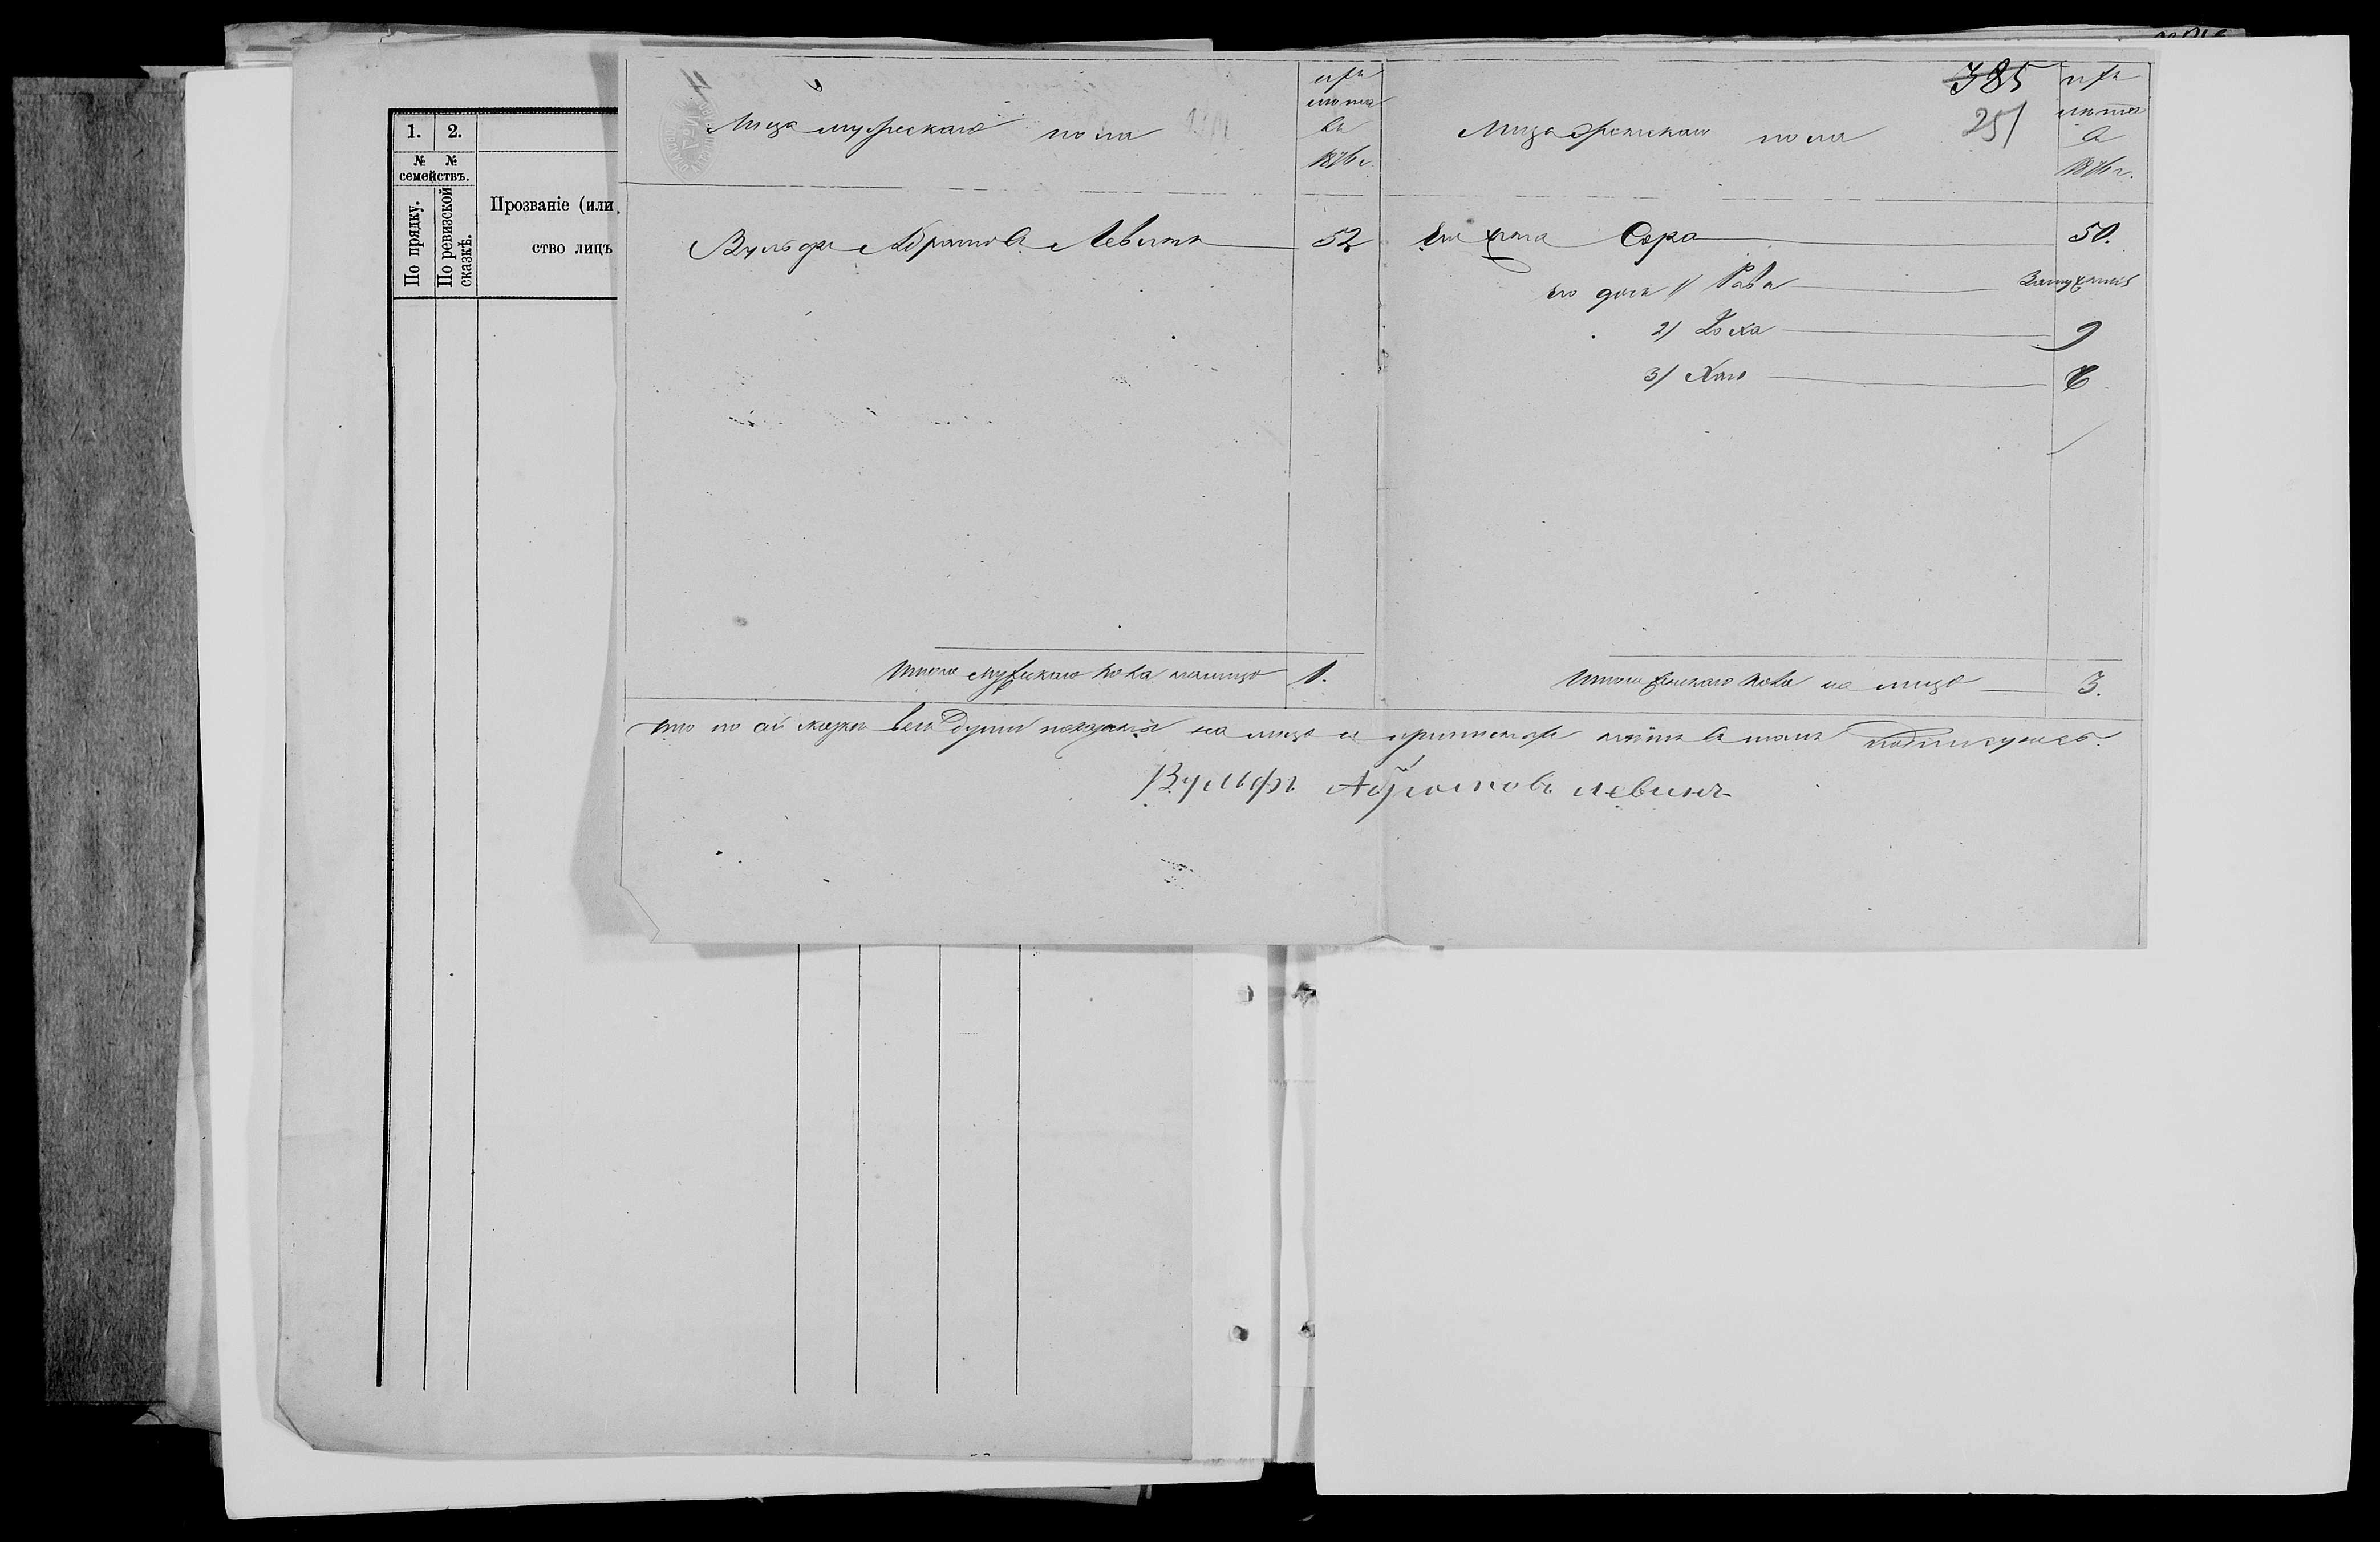 1. 2.
№ №
семействъ.
По прядку.
По ревизской
сказкѣ.
Прозваніе (или
ство лицъ
Лица мужескаго пола
лѣта
въ
1874 г.
385
251
Лица женскаго пола
лѣта
въ
1874 г.
Вульфъ Абрамовъ Левинъ 52
Его жена Сора 50.
его дочь 1/ Рава Замужемъ
2/ Хоха 9
3/ Хая 6
Итого мужскаго пола на лицо 1.
Итого женскаго пола на лицо 3.
что по сей сказкѣ всѣ души показаны на лицо и въ томъ подписуюсь.
Вульфъ Абрамовъ Левинъ